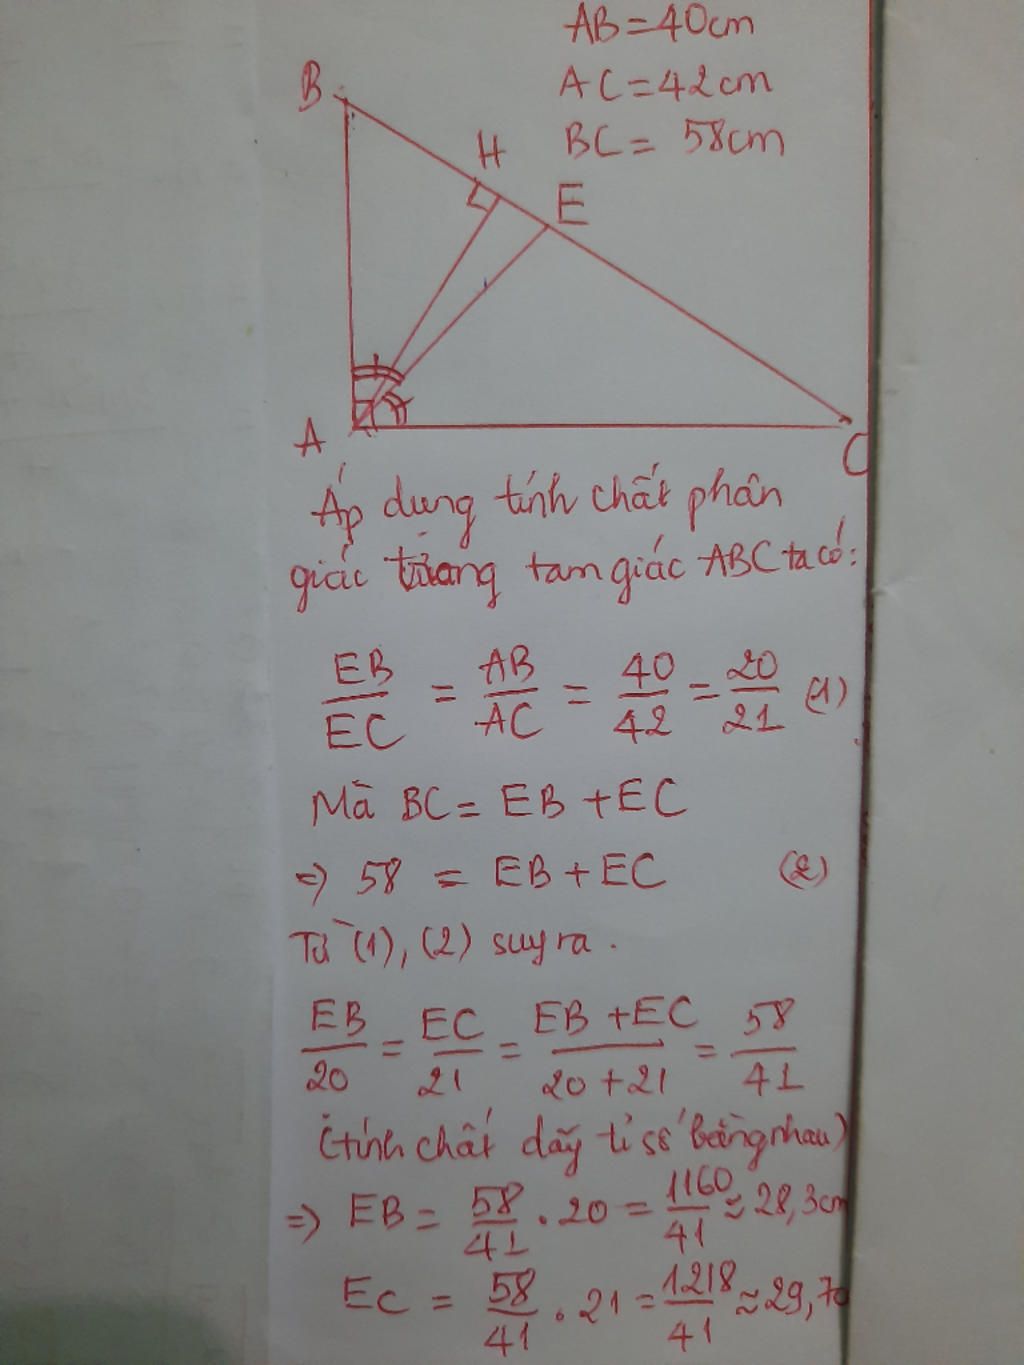 AB = 40cm
AC = 42cm
BC = 58cm
B
H
E
A
C
Áp dụng tính chất phân
giác trong tam giác ABC ta có:
EB/EC = AB/AC = 40/42 = 20/21 (1)
Mà BC = EB + EC
=> 58 = EB + EC (2)
Từ (1), (2) suy ra.
EB/20 = EC/21 = EB + EC/20 + 21 = 58/41
(tính chất dãy tỉ số bằng nhau)
=> EB = 58/41 . 20 = 1160/41 ≈ 28,3cm
EC = 58/41 . 21 = 1218/41 ≈ 29,7c